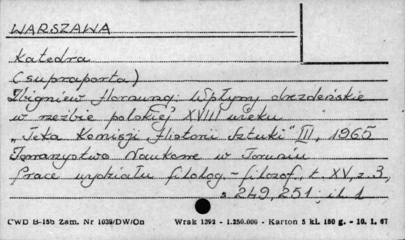 WARSZAWA
Katedra
(supraporta)
Zbigniew Hornung: Wpływy drezdeńskie
w rzeźbie polskiej XVIII wieku
„Teka Komisji Historii Sztuki" III, 1965
Towarzystwo Naukowe w Toruniu
Prace wydziału filolog.-filozof., t. XV, z. 3,
s 249, 251; il. 1
CWD B-15b Zam. Nr 1039/DW/On Wrak 1292 - 1.250.000 - Karton 5 kl. 180 g. - 10. 1. 67